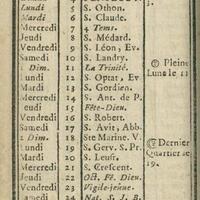 Lundi 5 S. Othon.
Mardi 6 S. Claude.
Mercredi 7 4 Tems.
Jeudi 8 S. Médard.
Vendredi 9 S. Léon, Ev.
Samedi 10 S. Landry.
1. Dim. 11 La Trinité.
Lundi 12 S. Optat, Ev.
Mardi 13 S. Gordien.
Mercredi 14 S. Ant. de P.
Jeudi 15 Fête-Dieu.
Vendredi 16 S. Robert.
Samedi 17 S. Avit, Abb.
Dim. 18 Ste Marine. V.
Lundi 19 S. Gerv. S. Pr.
Mardi 20 S. Leufr.
Mercredi 21 S. Crescent.
Jeudi 22 Oct. Fê. Dieu.
Vendredi 23 Vigile-jeûne.
Samedi 24 Nat. S. J. B.
Pleine
Lune le 11
Dernier
Quartier le
19.